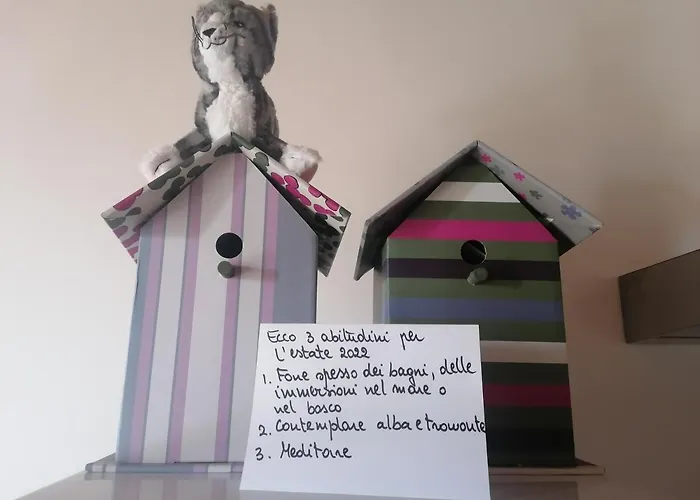 Ecco 3 abitudini per
l'estate 2022
1. Fare spesso dei bagni, delle
immersioni nel mare o
nel bosco
2. Contemplare alba e tramonto
3. Meditare